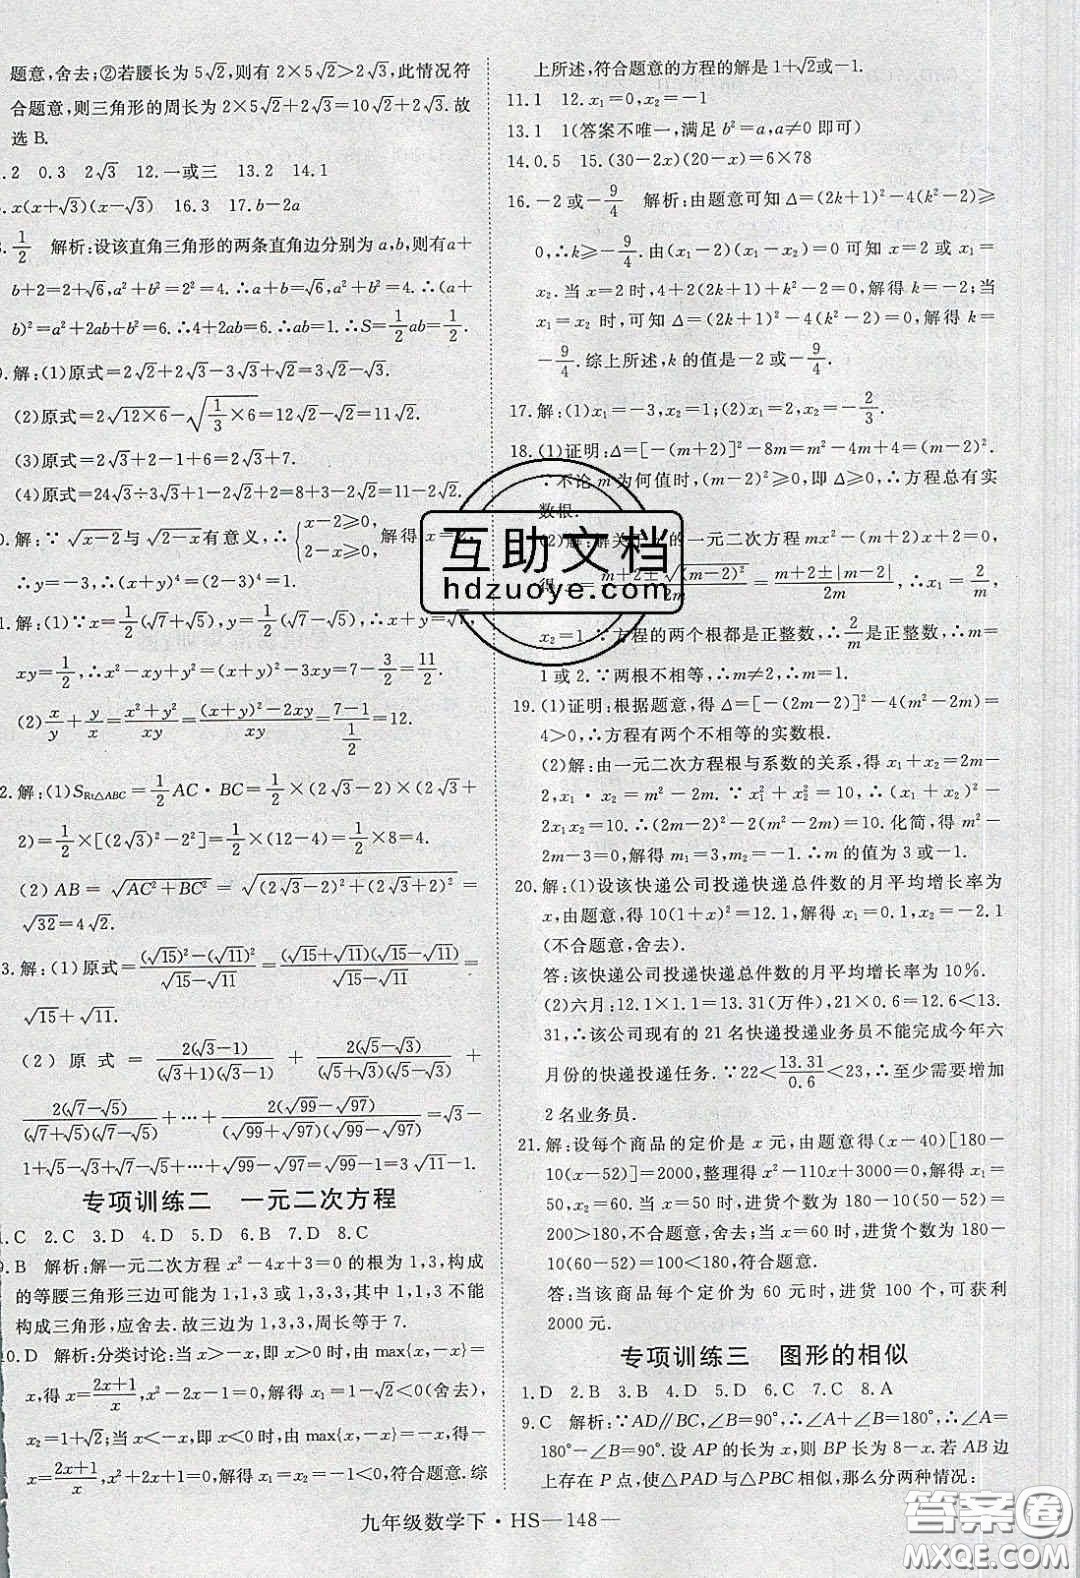 题意,舍去;②若腰长为 5√2,则有 2×5√2>2√3,此情况符
合题意,则三角形的周长为 2×5√2+2√3=10√2+2√3.故
选 B.
.2 0.3 2√3 12.一或三 13.2 14.1
.x(x+√3)(x-√3) 16.3 17.b-2a
.1/2 解析:设该直角三角形的两条直角边分别为 a,b,则有 a+
b+2=2+√6,a²+b²=2²=4.∴a+b=√6,a²+b²=4.∴(a+
b)²=a²+2ab+b²=6.∴4+2ab=6.∴ab=1.∴S=1/2 ab=1/2.
.解:(1)原式=2√2+2√3-3√3+√2=3√2-√3.
(2)原式=2√(12×6)-√(1/3×6)=12√2-√2=11√2.
(3)原式=2√3+2-1+6=2√3+7.
(4)原式=24√3÷3√3+√2+2=8+√2+2=10+√2.
0.解:∵√(x-2)与√(2-x)有意义,∴{x-2≥0, 2-x≥0, 解得 x=2,
∴y=-3.∴(x+y)⁴=(2-3)⁴=(-1)⁴=1.
1.解:(1)∵x=1/2(√7+√5),y=1/2(√7-√5),∴x+y=√7,
xy=1/2,∴x²-xy+y²=(x+y)²-3xy=7-3/2=11/2.
(2)x/y+y/x=(x²+y²)/xy=((x+y)²-2xy)/xy=(7-1)/(1/2)=12.
2.解:(1)S Rt△ABC=1/2 AC·BC=1/2×(2√3-2)×(2√3+
2)=1/2×[(2√3)²-2²]=1/2×(12-4)=1/2×8=4.
(2)AB=√(AC²+BC²)=√((2√3-2)²+(2√3+2)²)=
√32=4√2.
3.解:(1)原式=((√15)²-(√11)²)/(√15-√11)=(√15+√11)(√15-√11)/(√15-√11)=
√15+√11.
(2)原式=2(√3-1)/(√3+1)(√3-1)+2(√5-√3)/(√5+√3)(√5-√3)+
2(√7-√5)/(√7+√5)(√7-√5)+…+2(√99-√97)/(√99+√97)(√99-√97)=√3-
1+√5-√3+√7-√5+…+√99-√97=√99-1=3√11-1.
专项训练二 一元二次方程
1.C 2.C 3.D 4.D 5.D 6.B 7.D 8.C
9.B 解析:解一元二次方程 x²-4x+3=0 的根为 1,3,构成
的等腰三角形三边可能为 1,1,3 或 1,3,3,其中 1,1,3 不能
构成三角形,应舍去.故三边为 1,3,3,周长等于 7.
10.D 解析:分类讨论:当 x>-x,即 x>0 时,由 max{x,-x}=
x,得 x=(2x+1)/x,x²-2x-1=0,解得 x₁=1-√2(舍去),
x₂=1+√2;当-x>x,即 x<0 时,由 max{x,-x}=-
x=(2x+1)/x,x²+2x+1=0,解得 x=-1<0,符合题意.综
上所述,符合题意的方程的解是 1+√2或-1.
11.1 12.x₁=0,x₂=-1
13.1 1(答案不唯一,满足 b²=a,a≠0 即可)
14.0.5 15.(30-2x)(20-x)=6×78
16.-2或-9/4 解析:由题意可知 Δ=(2k+1)²-4(k²-2)≥
0,∴k≥-9/4.由(x₁-2)(x₁-x₂)=0 可知 x=2 或 x₁=
x₂.当 x=2 时,4+2(2k+1)+k²-2=0,解得 k=-2;当
x₁=x₂ 时,可知 Δ=(2k+1)²-4(k²-2)=0,解得 k=
-9/4.综上所述,k 的值是-2 或-9/4.
17.解:(1)x₁=-3,x₂=1;(2)x₁=2,x₂=-2/3.
18.(1)证明:Δ=[-(m+2)]²-8m=m²-4m+4=(m-2)².
∵不论 m 为何值时,(m-2)²≥0,即 Δ≥0,∴方程总有实
数根.
(2)解:解关于 x 的一元二次方程 mx²-(m+2)x+2=0,
得 x=(m+2±√(m-2)²)/2m=(m+2±|m-2|)/2m,∴x₁=2/m,
x₂=1.∵方程的两个根都是正整数,∴2/m是正整数,∴m=
1 或 2.∵两根不相等,∴m≠2,∴m=1.
19.(1)证明:根据题意,得 Δ=[-(2m-2)]²-4(m²-2m)=
4>0,∴方程有两个不相等的实数根.
(2)解:由一元二次方程根与系数的关系,得 x₁+x₂=2m-
2,x₁·x₂=m²-2m.∵x₁²+x₂²=10,∴(x₁+x₂)²-
2x₁x₂=10,∴(2m-2)²-2(m²-2m)=10.化简,得 m²-
2m-3=0,解得 m₁=3,m₂=-1.∴m 的值为 3 或-1.
20.解:(1)设该快递公司投递快递总件数的月平均增长率为
x,由题意,得 10(1+x)²=12.1,解得 x₁=0.1,x₂=-2.1
(不合题意,舍去).
答:该快递公司投递快递总件数的月平均增长率为 10%.
(2)六月:12.1×1.1=13.31(万件),21×0.6=12.6<13.
31,∴该公司现有的 21 名快递投递业务员不能完成今年六
月份的快递投递任务.∵22<13.31/0.6<23,∴至少需要增加
2 名业务员.
21.解:设每个商品的定价是 x 元,由题意得(x-40)[180-
10(x-52)]=2000,整理得 x²-110x+3000=0,解得 x₁=
50,x₂=60.当 x=50 时,进货个数为 180-10(50-52)=
200,不符合题意,舍去;当 x=60 时,进货个数为 180-
10(60-52)=100,符合题意.
答:当该商品每个定价为 60 元时,进货 100 个,可获利
2000 元.
专项训练三 图形的相似
1.D 2.B 3.B 4.D 5.D 6.C 7.C 8.A
9.C 解析:∵AD∥BC,∠B=90°,∴∠A+∠B=180°,∴∠A=
180°-∠B=90°.设 AP 的长为 x,则 BP 长为 8-x.若 AB 边
上存在 P 点,使△PAD 与△PBC 相似,那么分两种情况:
九年级数学下·HS—148—
互助文档
hdzuoye.com
答案圈
MXQE.COM